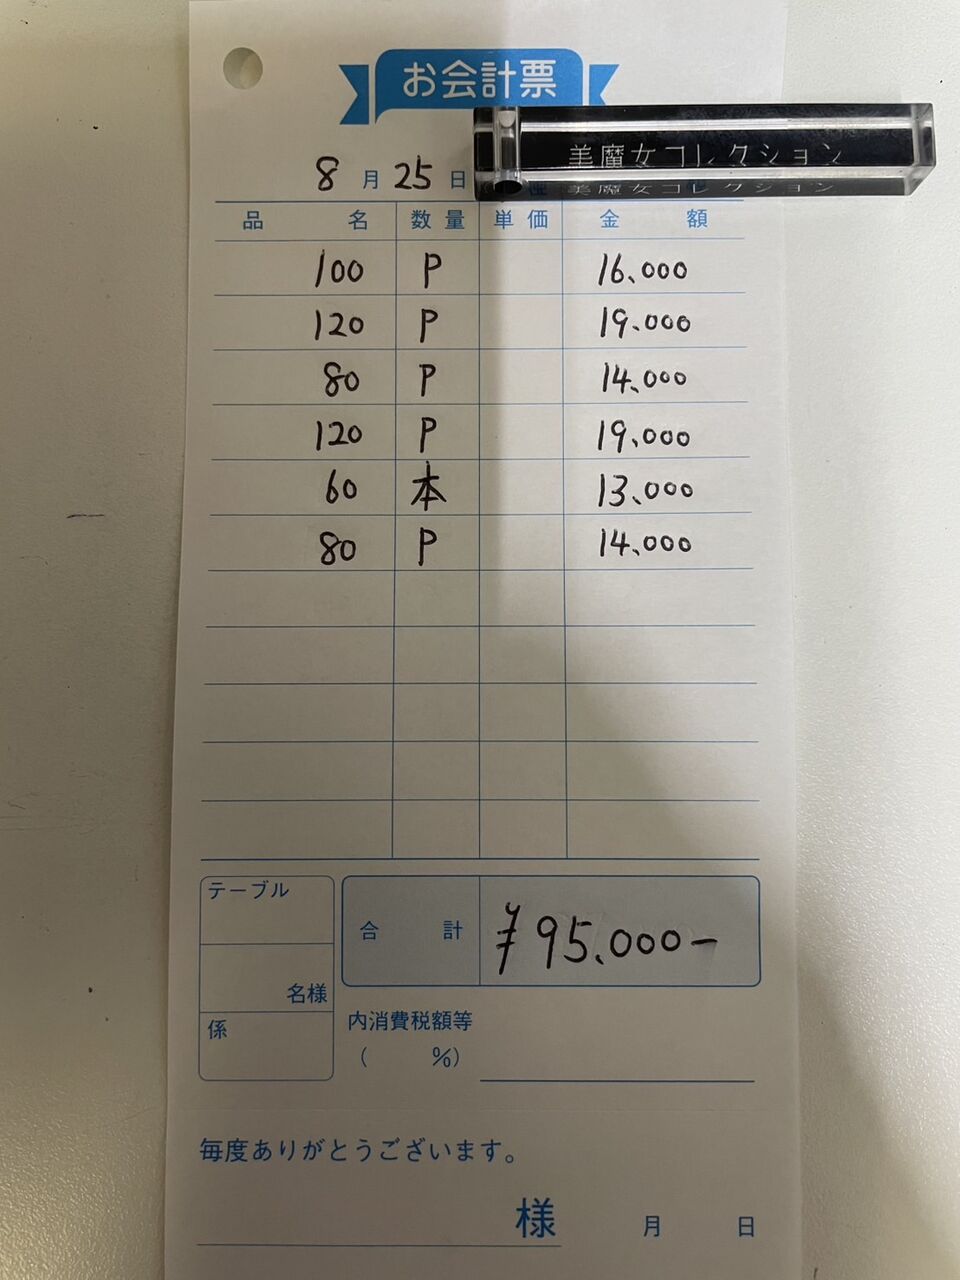 お会計票
美魔女コレクション
美魔女コレクション
8月25日
品名 数量 単価 金額
100 P 16,000
120 P 19,000
80 P 14,000
120 P 19,000
60 本 13,000
80 P 14,000
テーブル
名様
係
合計 ¥95,000-
内消費税額等
( %)
毎度ありがとうございます。
様 月 日